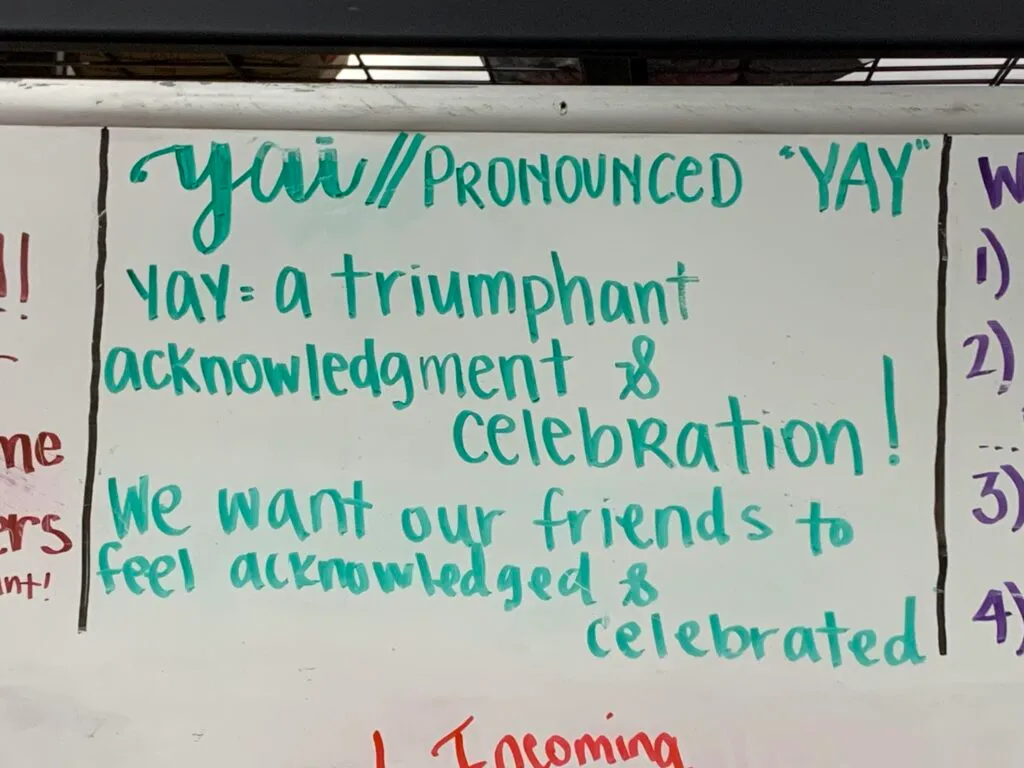 yai // PRONOUNCED "YAY"
YAY = a triumphant
acknowledgment &
celebration!
We want our friends to
feel acknowledged &
celebrated
Incoming
1)
2)
3)
4)